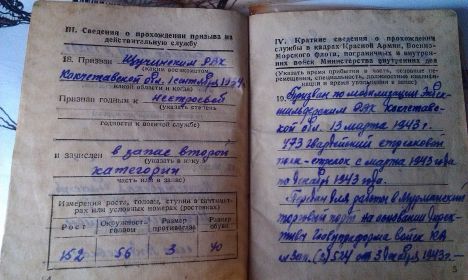 III. Сведения о прохождении призыва на
действительную службу
18. Призван Щучинским РВК
(каким военкоматом,
Кокчетавской обл. 1 сентября
области и когда)
Признан годным к нестроевой
(указать степень
годности к военной службе)
и зачислен в запас второй
(указать в какую
категории
часть или в запас)
Измерения роста, головы, ступни в сантимет-
рах или условных номерах (ростовках)
Рост Окружность головы Размер противогаза Размер обуви
152 56 3 40
IV. Краткие сведения о прохождении
службы в кадрах Красной Армии, Военно-
Морского флота, пограничных и внутрен-
них войск Министерства внутренних дел
(Указать время прибытия в часть, сокращения
и время увольнения в запас)
19. Призван по мобилизации
РВК Кокчетав-
ской обл. 13 марта 1943 г.
473 гвардейский стрелковый
полк - стрелок с марта 1943 года
по декабрь 1943 года.
для работы в Мурманский
торговый порт на основании дирек-
тивы Главупраформа войск КА
от 3 декабря 1943 г.
5